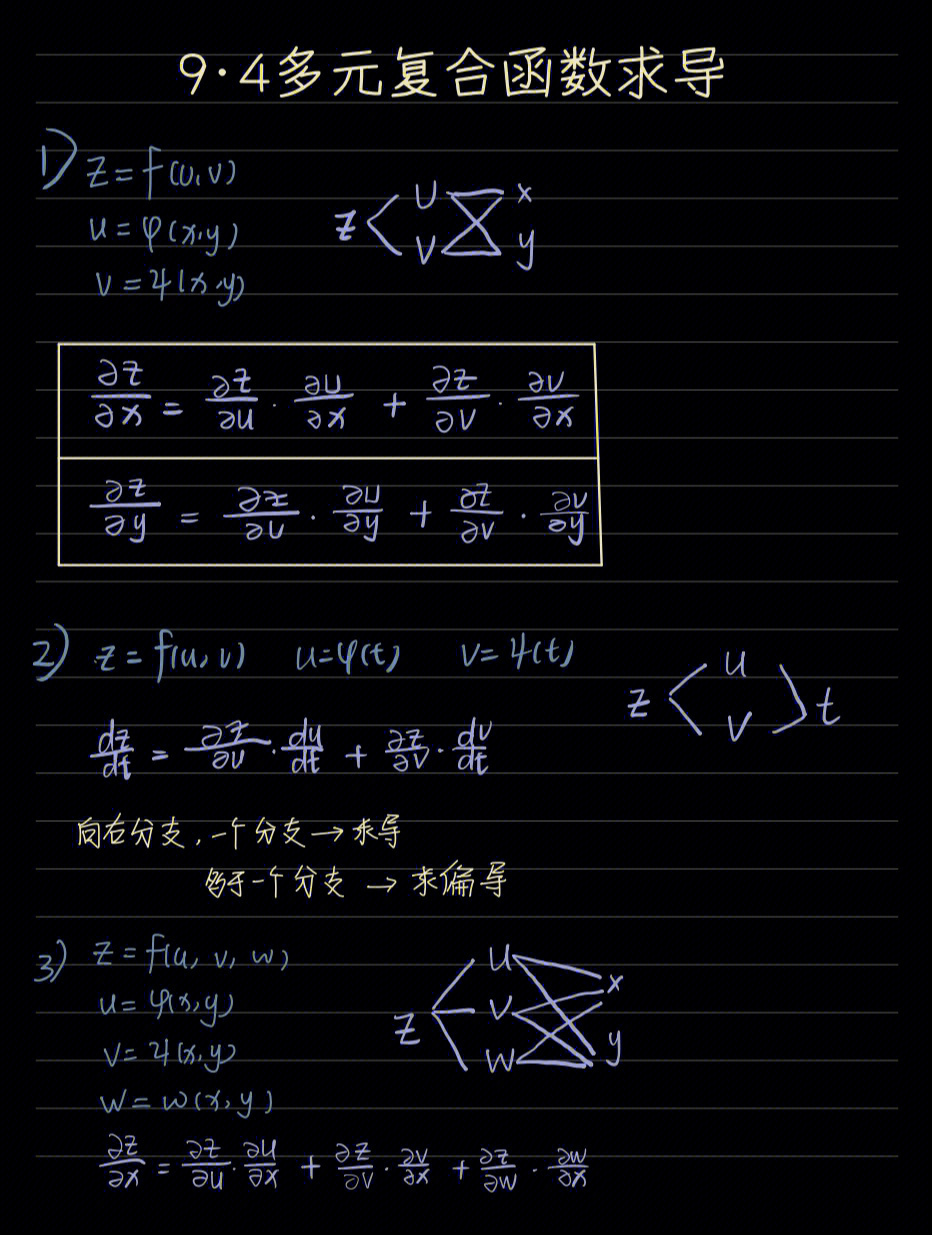 9.4多元复合函数求导
1) z=f(u,v)
u=φ(x,y)
v=ψ(x,y)
z u v x y
∂z/∂x = ∂z/∂u · ∂u/∂x + ∂z/∂v · ∂v/∂x
∂z/∂y = ∂z/∂u · ∂u/∂y + ∂z/∂v · ∂v/∂y
2) z=f(u,v) u=φ(t) v=ψ(t)
z u v t
dz/dt = ∂z/∂u · du/dt + ∂z/∂v · dv/dt
向右分支,一个分支→求导
多于一个分支→求偏导
3) z=f(u,v,w)
u=φ(x,y)
v=ψ(x,y)
w=w(x,y)
z u v w x y
∂z/∂x = ∂z/∂u · ∂u/∂x + ∂z/∂v · ∂v/∂x + ∂z/∂w · ∂w/∂x